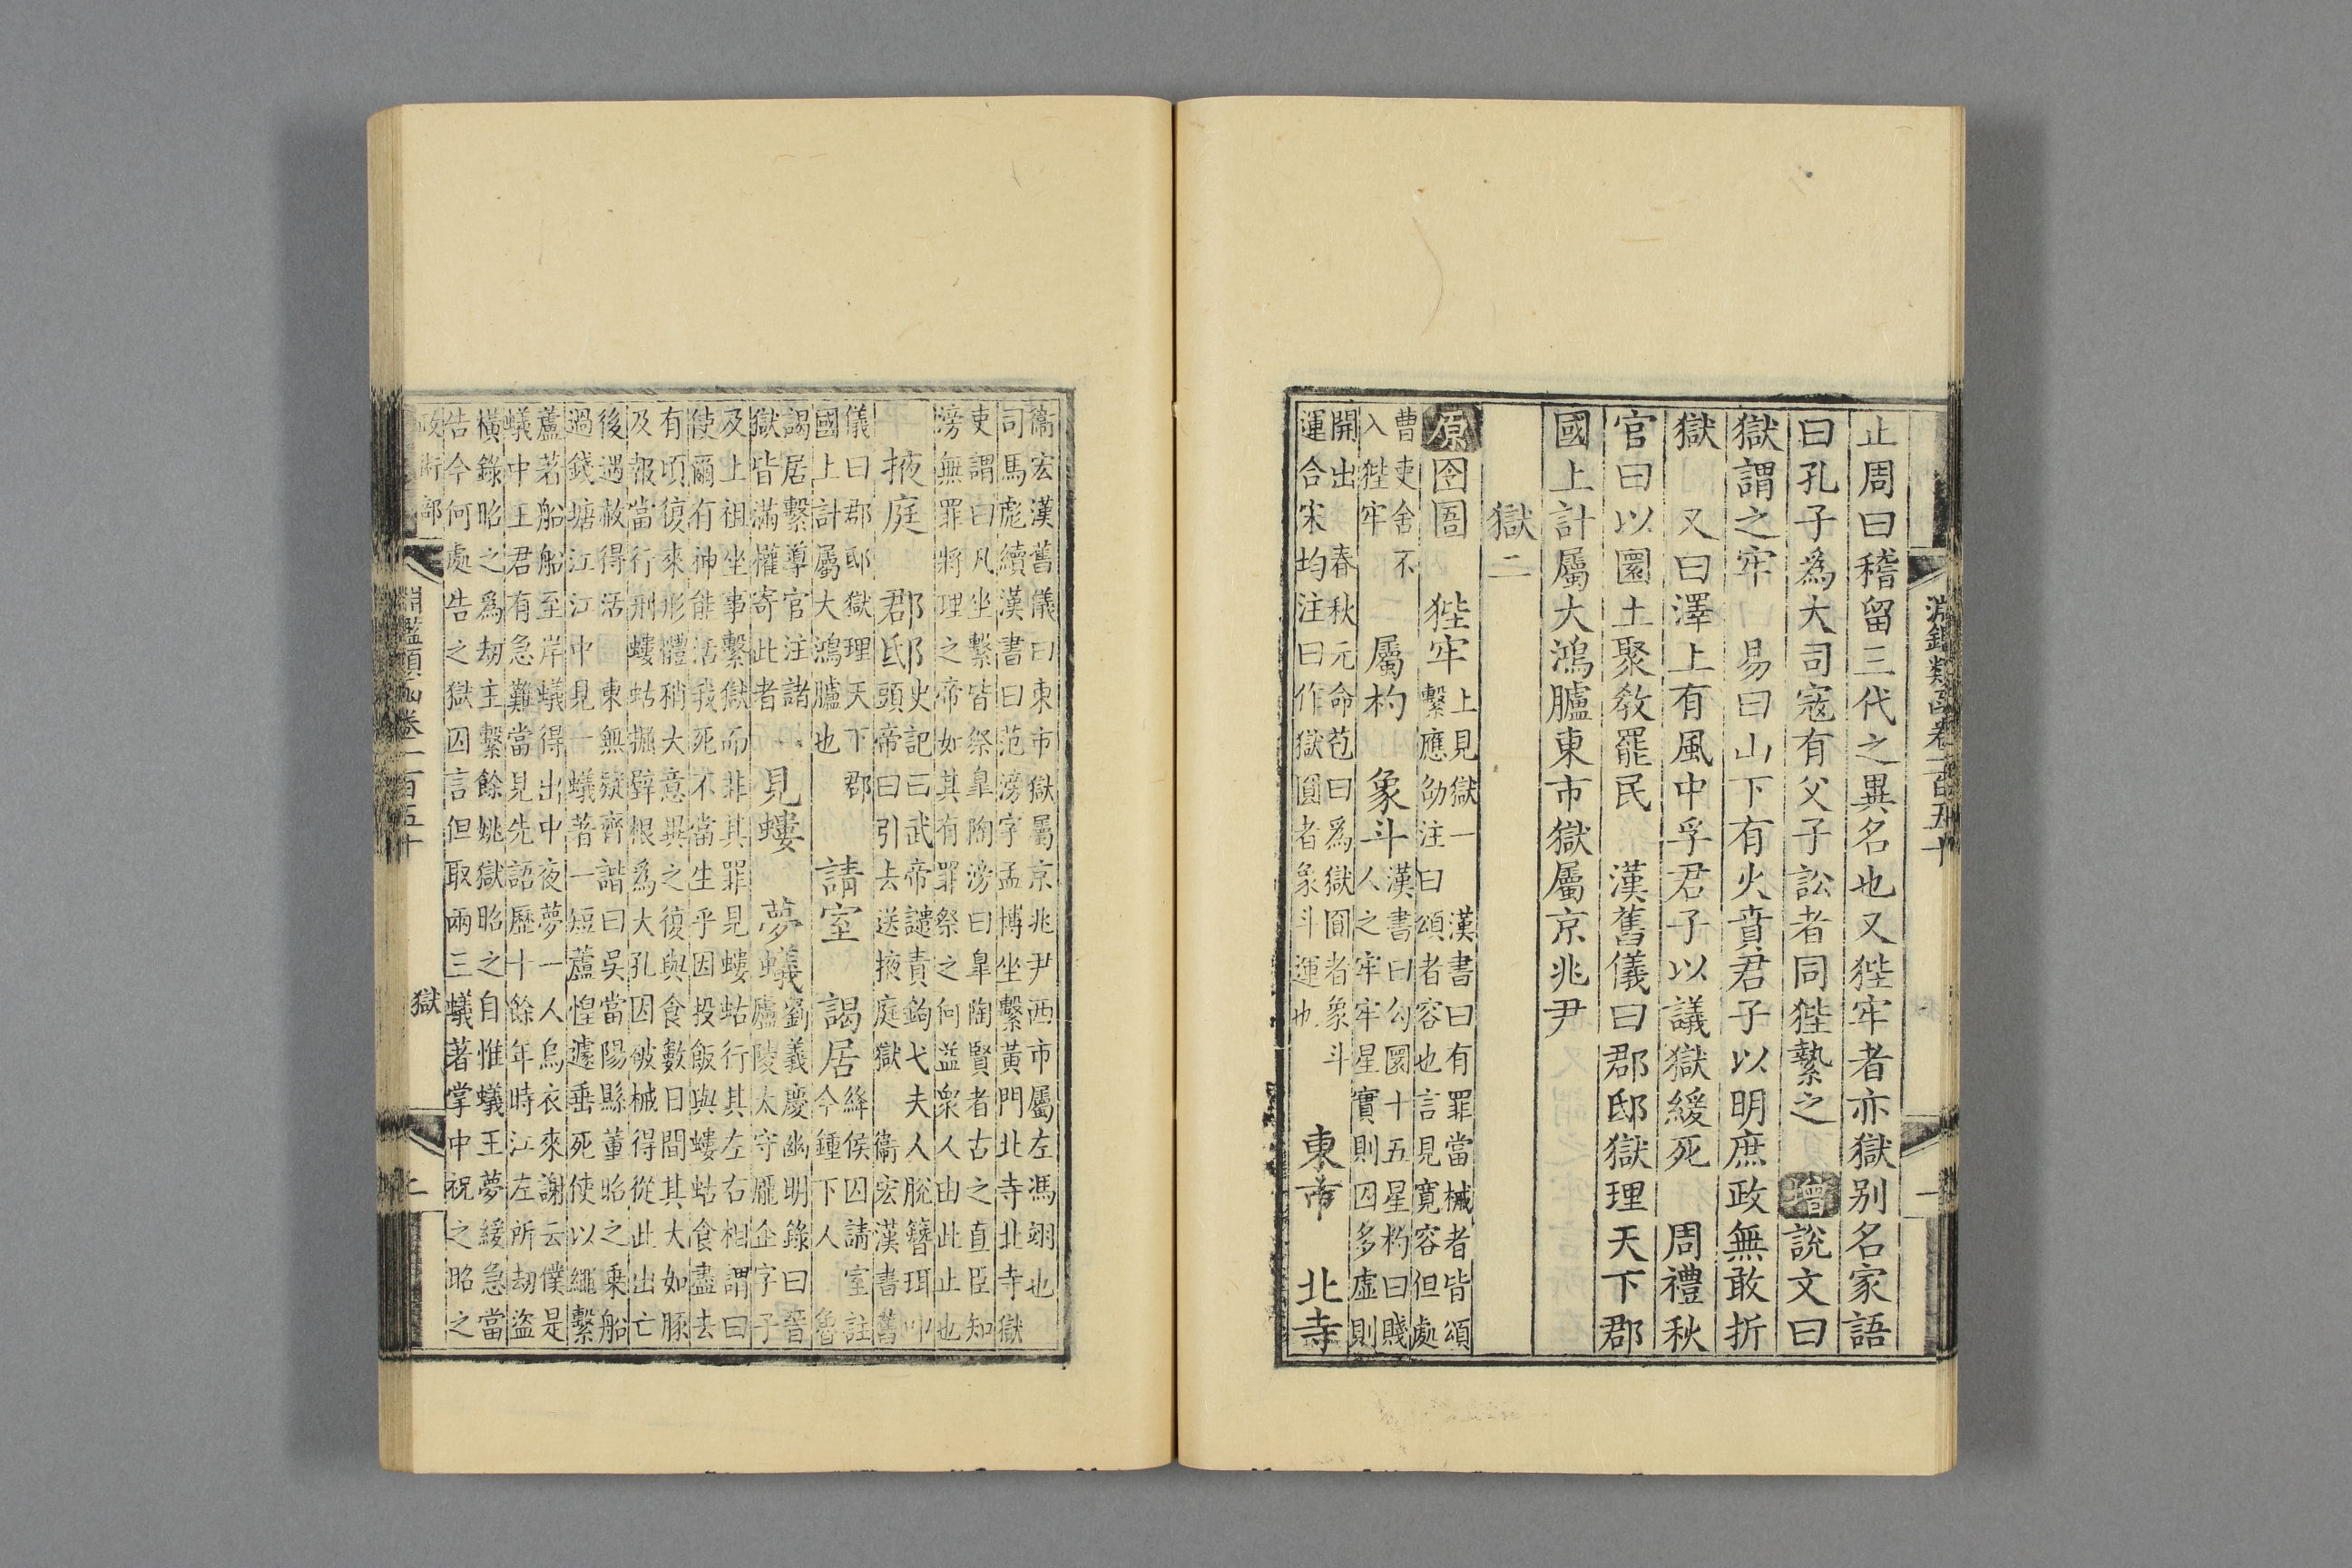 止周曰稽留三代之異名也又狴牢者亦獄别名家語
曰孔子爲大司寇有父子訟者同狴縶之增説文曰
獄謂之牢 易曰山下有火賁君子以明庶政無敢折
獄 又曰澤上有風中孚君子以議獄緩死 周禮秋
官曰以圜土聚敎罷民 漢舊儀曰郡邸獄理天下郡
國上計屬大鴻臚東市獄屬京兆尹
獄二
原囹圄 狴牢上見獄一 漢書曰有罪當械者皆頌
繫應劭注曰頌者容也言見寬容但處
曹吏舍不
入狴牢 屬杓 象斗漢書曰勾圜十五星杓曰賤
人之牢牢星實則囚多虛則
開出 春秋元命苞曰爲獄圓者象斗
運合宋均注曰作獄圓者象斗運也 東市 北寺
衞宏漢舊儀曰東市獄屬京兆尹西市屬左馮翊也
司馬彪續漢書曰范滂字孟博坐繫黃門北寺北寺獄
吏謂曰凡坐繫皆祭皐陶滂曰皐陶賢者古之直臣知
滂無罪將理之帝如其有罪祭之何益衆人由此止也
掖庭 郡邸史記曰武帝譴責鉤弋夫人脫簪珥叩
頭帝曰引去送掖庭獄 衞宏漢書舊
儀曰郡邸獄理天下郡
國上計屬大鴻臚也 請室 謁居絳侯囚請室註
今鍾下人 魯
謁居繫導官注諸
獄皆滿權寄此者 見螻 夢蟻劉義慶幽明錄曰晉
廬陵太守龐企字子
及上祖坐事繫獄而非其罪見螻蛄行其左右相謂曰
使爾有神能活我死不當生乎因投飯與螻蛄食盡去
有頃復來形體稍大意異之復與食數日間其大如豚
及報當行刑螻蛄掘壁根爲大孔因破械得從此出亡
後遇赦得活 東無疑齊諧曰吳當陽縣董昭之乘船
過錢塘江江中見一蟻著一短蘆惶遽垂死使以繩繫
蘆著船船至岸蟻得出中夜夢一人烏衣來謝云僕是
蟻中王君有急難當見先語歷十餘年時江左所劫盜
橫錄昭之爲劫主繫餘姚獄昭之自惟蟻王夢緩急當
告今何處告之獄囚言但取兩三蟻著掌中祝之昭之
獄